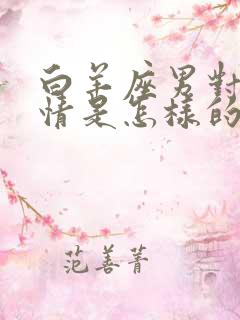 白羊座男對
情是怎樣的
范善菁